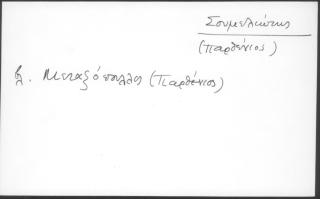 Σουμελιώτης
(Παρθένιος)
βλ. Μεταξόπουλλος (Παρθένιος)